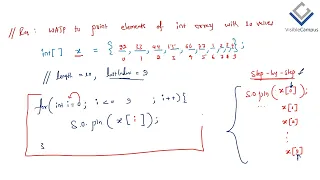 VisibleCampus
// Ex: WAJP to print elements of int array with 10 values
int[] x = { 33, 32, 44, 15, 66, 27, 3
0 1 2 3 4 5 6 7 8 9
// length = 10, lastIndex = 9
Step-by-Step
for(int i=0; i <= 9 ; i++){
s.o.pln(x[i]);
}
s.o.pln(x[0]);
x[1]
x[2]
⋮
x[9]